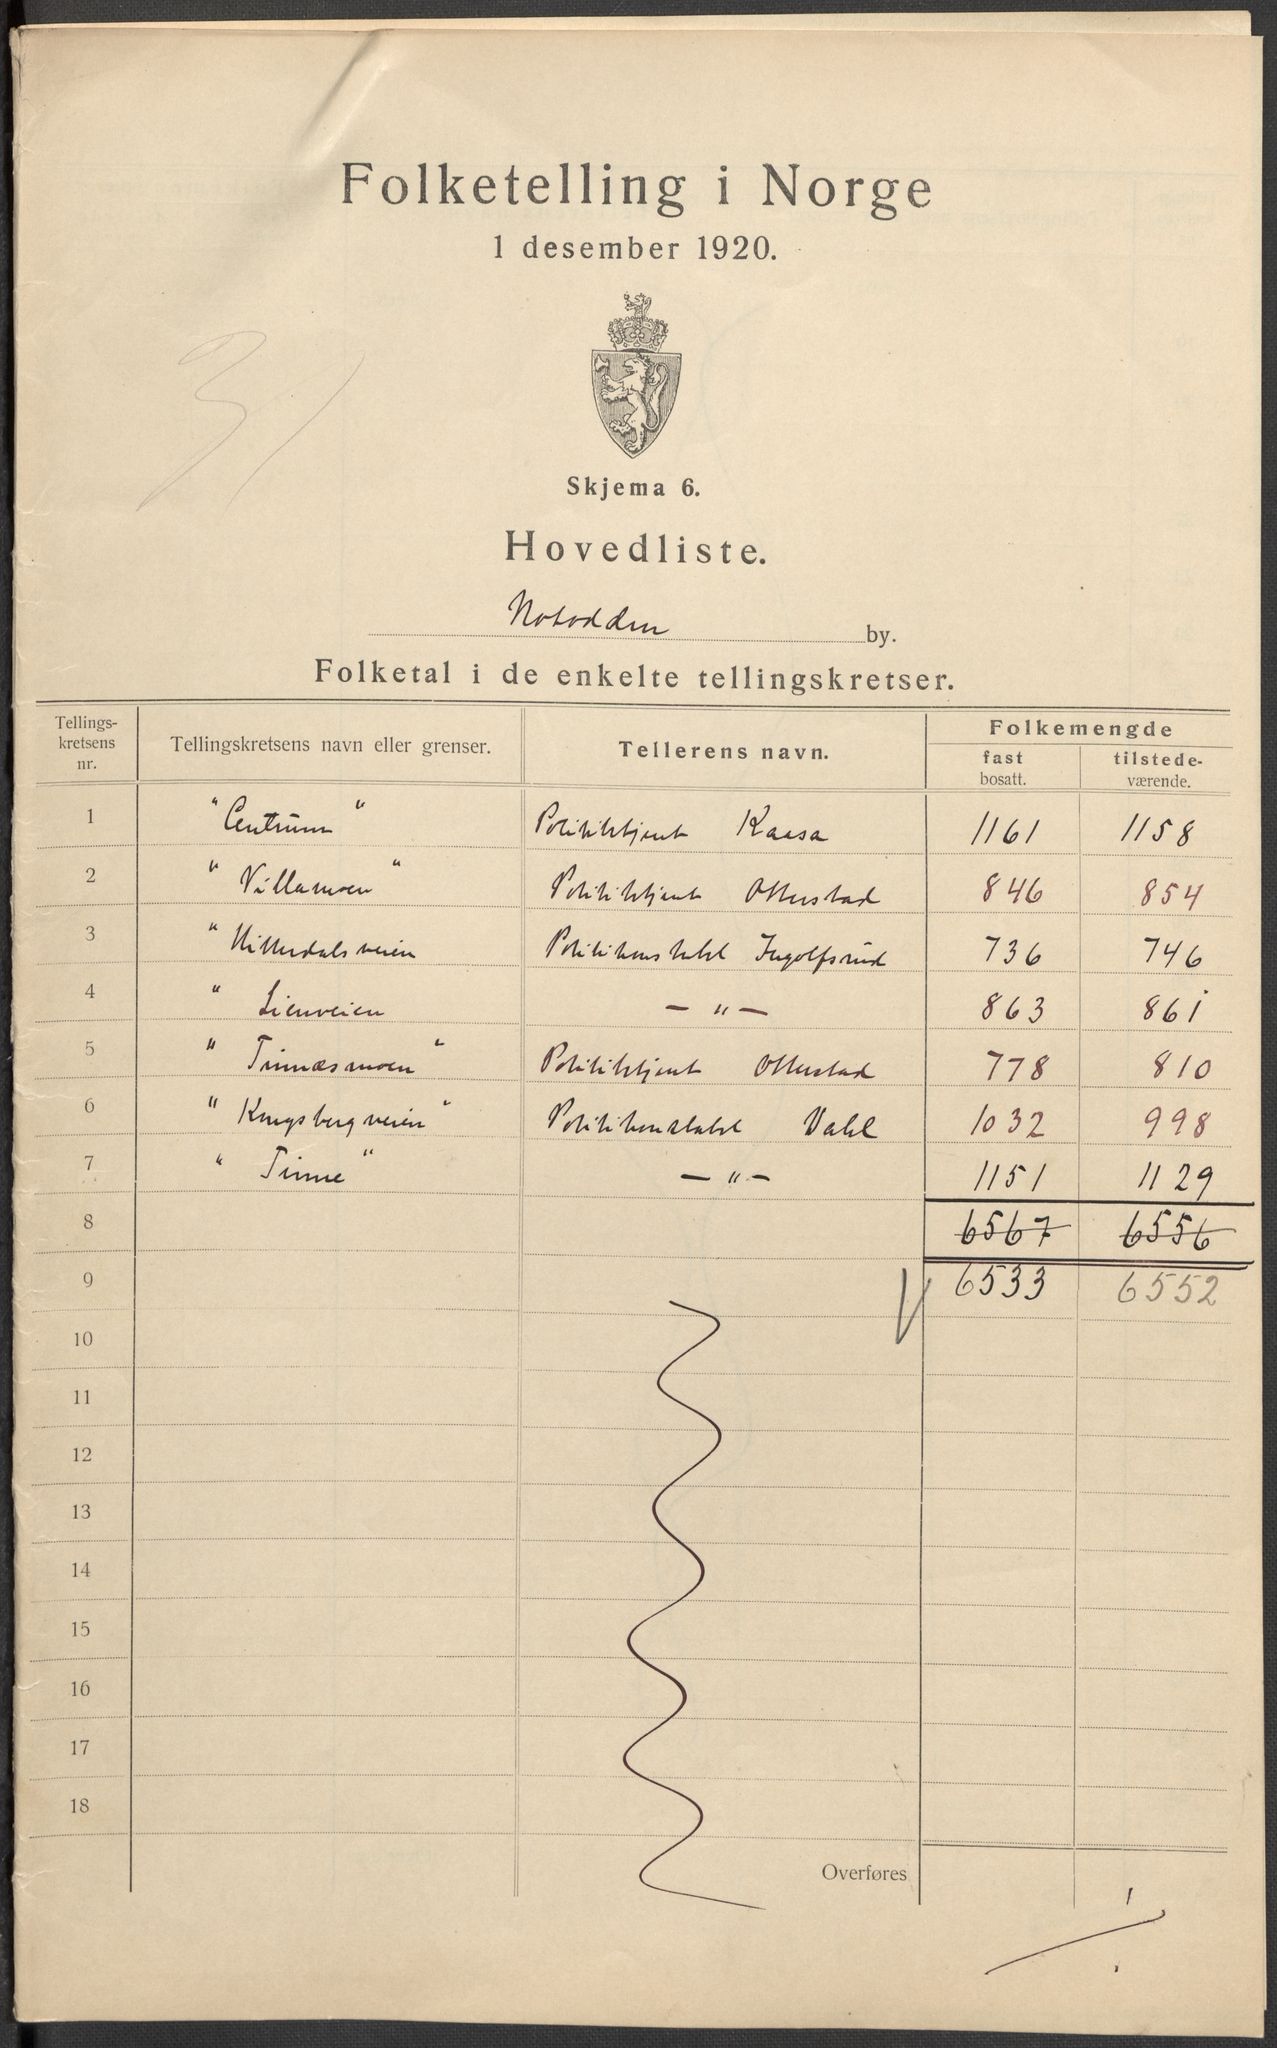 Folketelling i Norge
1 desember 1920.
Skjema 6.
Hovedliste.
Notodden by.
Folketal i de enkelte tellingskretser.
Tellings-
kretsens
nr.
Tellingskretsens navn eller grenser.
Tellerens navn.
Folkemengde
fast
bosatt.
tilstede-
værende.
1 "Centrum" Politibetjent Kaasa 1161 1158
2 "Villamoen" Politibetjent Otterstad 846 854
3 "Hitterdalsveien Politikonstabel Ingolfsrud 736 746
4 " Lienveien — " — 863 861
5 " Tinnæsmoen " Politibetjent Otterstad 778 810
6 " Kongsbergveien " Politikonstabel Dahl 1032 998
7 " Tinne " — " — 1151 1129
8 6567 6556
9 6533 6552
10
11
12
13
14
15
16
17
18
Overføres